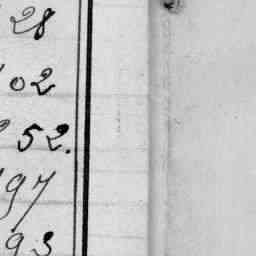 28
02
52.
97
93